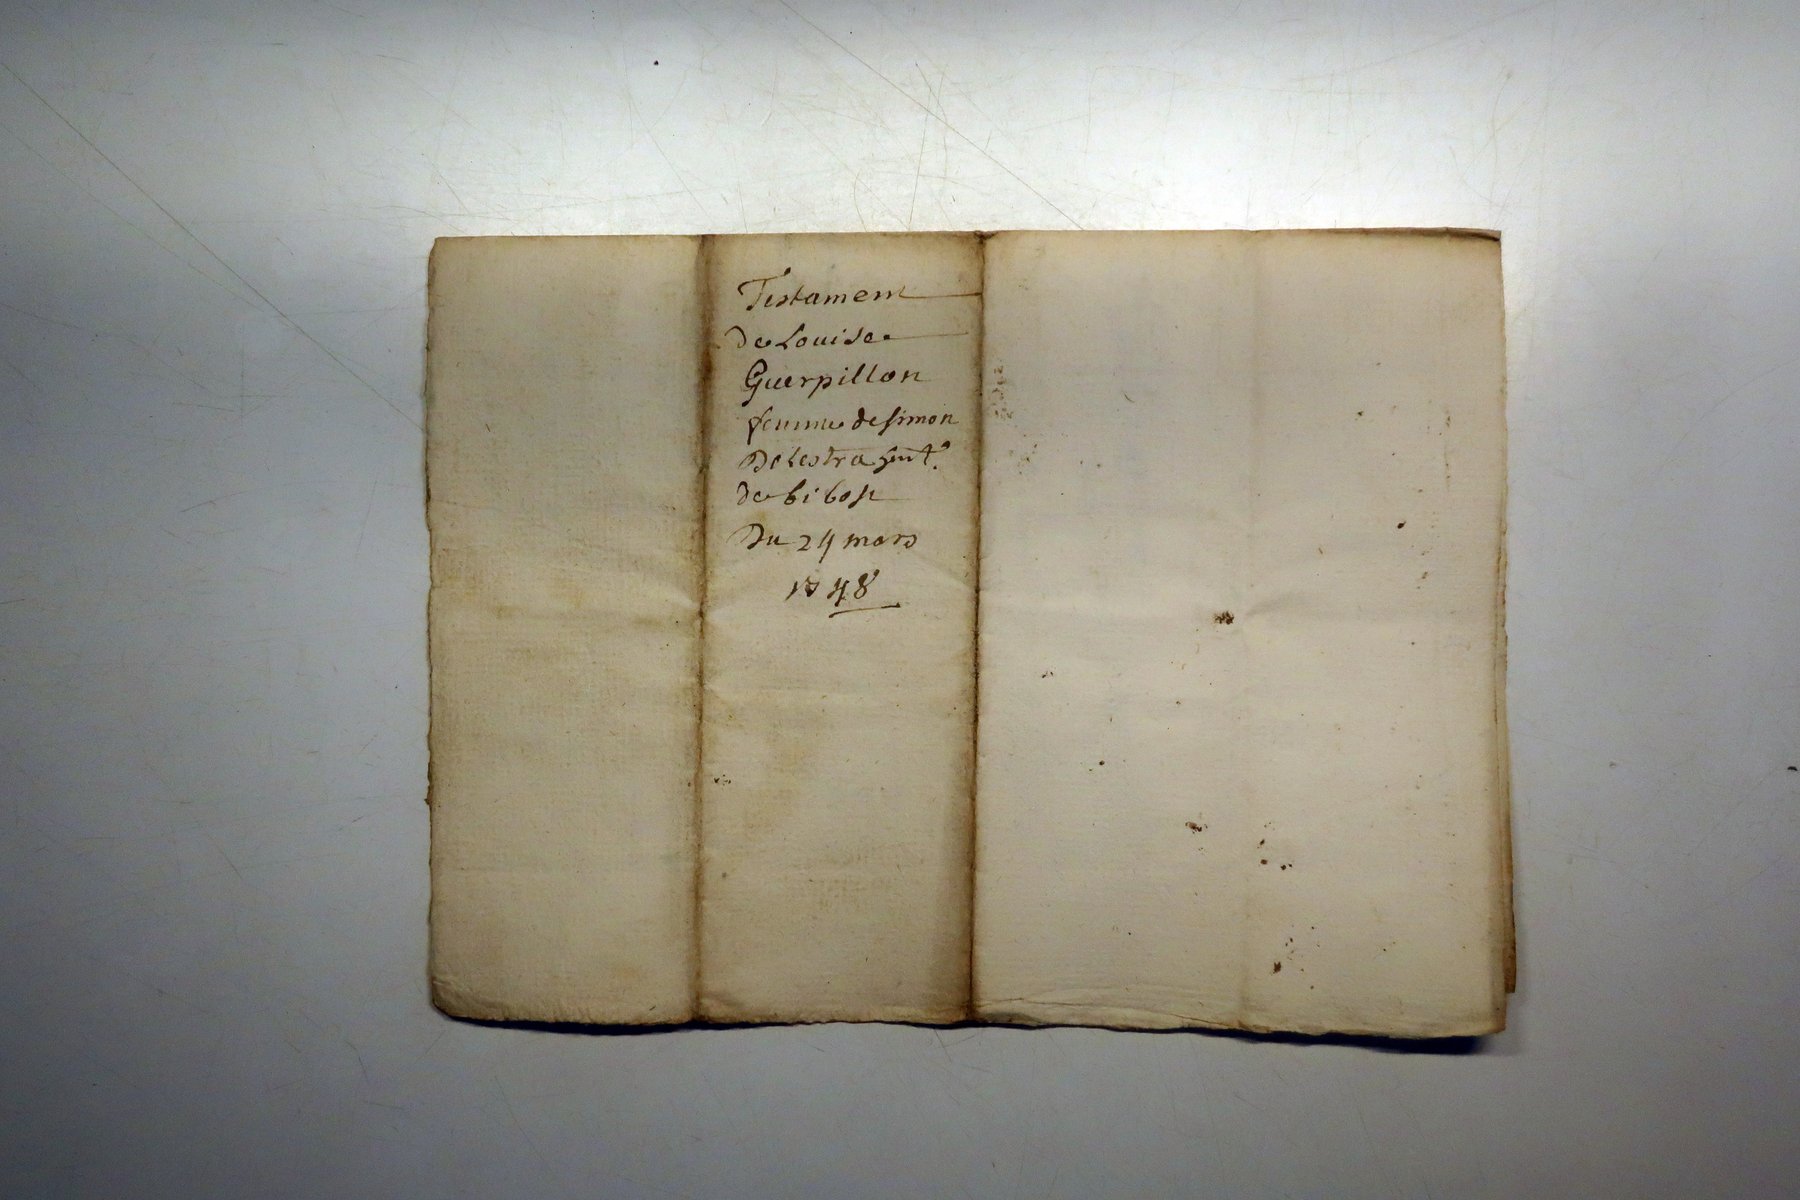 Testament
de Louise
Guerpillon
femme de simon
Delestra
de bibost
Du 24 mars
1748